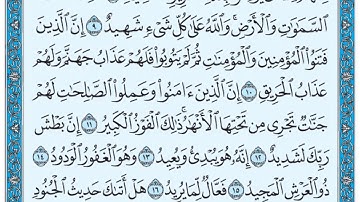 السَّمَٰوَٰتِ وَالْأَرْضِ ۚ وَاللَّهُ عَلَىٰ كُلِّ شَىْءٍ شَهِيدٌ ٩ إِنَّ الَّذِينَ
فَتَنُوا الْمُؤْمِنِينَ وَالْمُؤْمِنَٰتِ ثُمَّ لَمْ يَتُوبُوا فَلَهُمْ عَذَابُ جَهَنَّمَ وَلَهُمْ
عَذَابُ الْحَرِيقِ ١٠ إِنَّ الَّذِينَ ءَامَنُوا وَعَمِلُوا الصَّٰلِحَٰتِ لَهُمْ
جَنَّٰتٌ تَجْرِى مِن تَحْتِهَا الْأَنْهَٰرُ ۚ ذَٰلِكَ الْفَوْزُ الْكَبِيرُ ١١ إِنَّ بَطْشَ
رَبِّكَ لَشَدِيدٌ ١٢ إِنَّهُ هُوَ يُبْدِئُ وَيُعِيدُ ١٣ وَهُوَ الْغَفُورُ الْوَدُودُ ١٤
ذُو الْعَرْشِ الْمَجِيدُ ١٥ فَعَّالٌ لِّمَا يُرِيدُ ١٦ هَلْ أَتَىٰكَ حَدِيثُ الْجُنُودِ